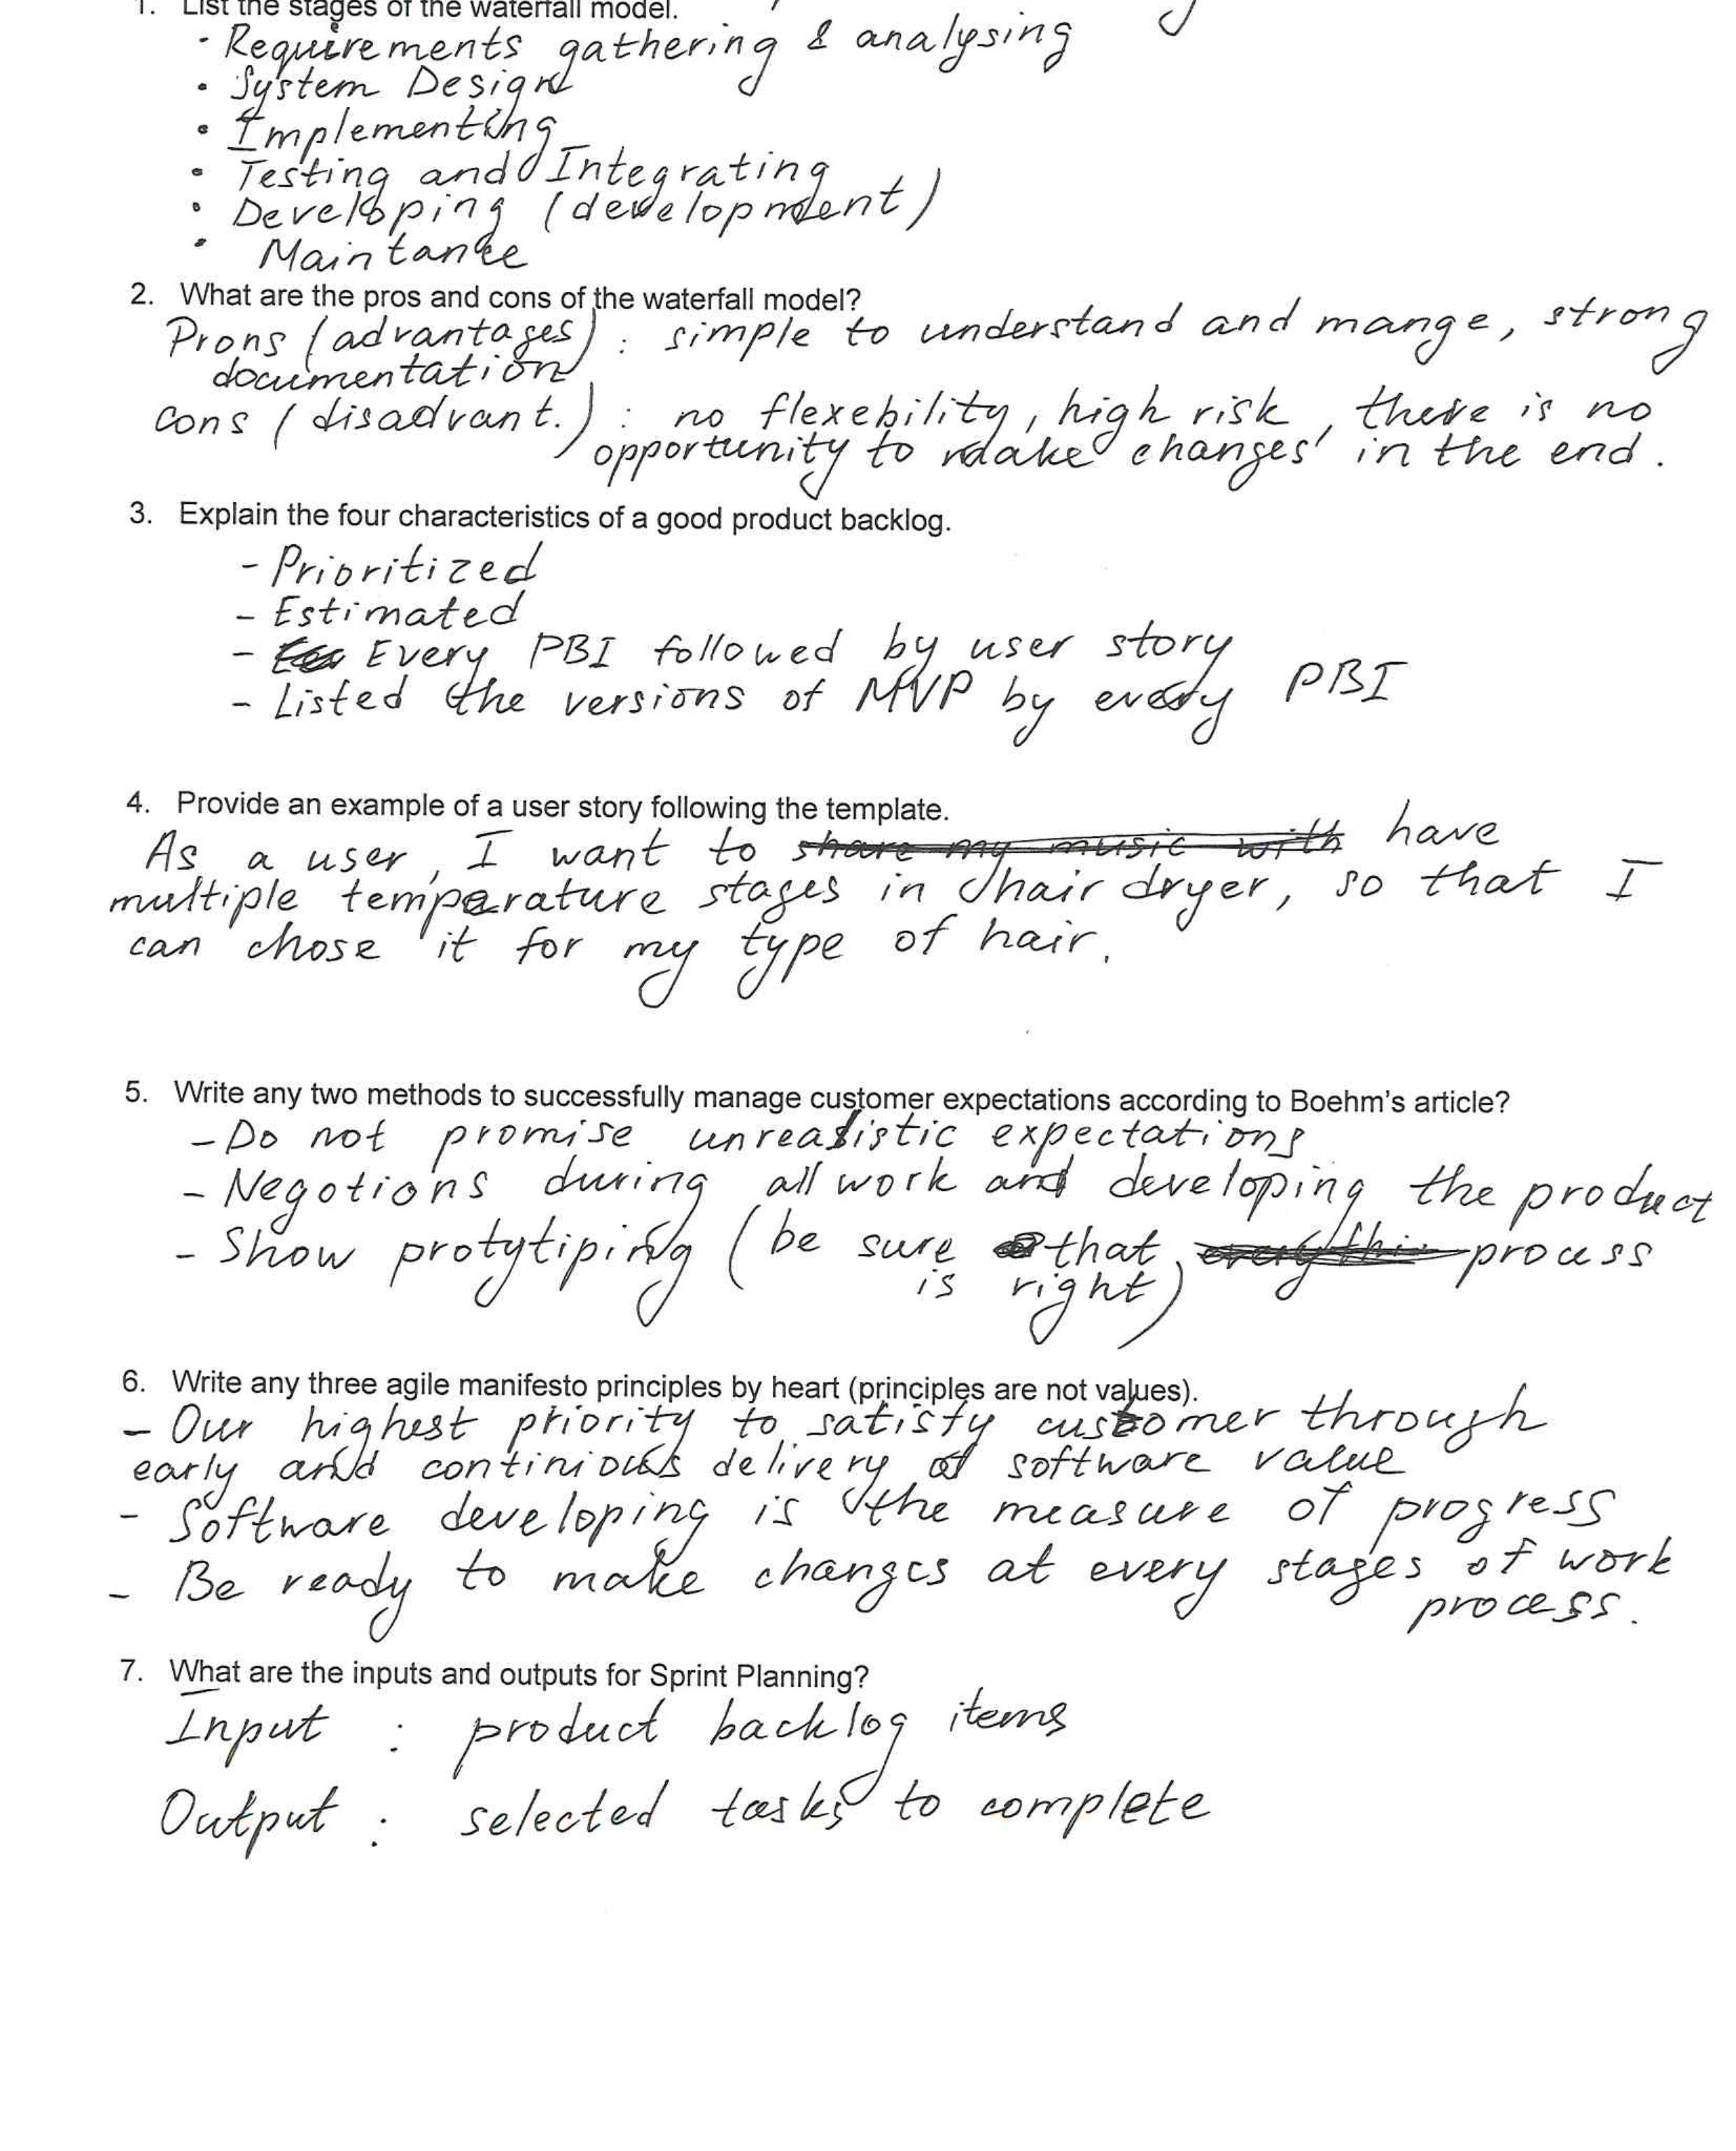 1. List the stages of the waterfall model.
· Requirements gathering & analysing
· System Design
· Implementing
· Testing and Integrating
· Developing (development)
· Maintance
2. What are the pros and cons of the waterfall model?
Prons (advantages) : simple to understand and mange, strong
documentation
cons (disadvant.) : no flexebility, high risk, there is no
opportunity to make changes in the end.
3. Explain the four characteristics of a good product backlog.
- Prioritized
- Estimated
- Every PBI followed by user story
- Listed the versions of MVP by every PBI
4. Provide an example of a user story following the template.
As a user, I want to share my music with have
multiple temperature stages in hair dryer, so that I
can chose it for my type of hair.
5. Write any two methods to successfully manage customer expectations according to Boehm's article?
- Do not promise unrealistic expectations
- Negotions during all work and developing the product
- Show protytiping (be sure that everythin process
is right)
6. Write any three agile manifesto principles by heart (principles are not values).
- Our highest priority to satisfy customer through
early and continious delivery of software value
- Software developing is the measure of progress
- Be ready to make changes at every stages of work
process.
7. What are the inputs and outputs for Sprint Planning?
Input : product backlog items
Output : selected tasks to complete